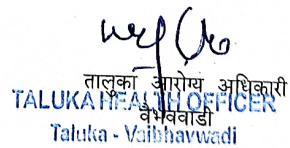 तालुका आरोग्य अधिकारी
TALUKA HEALTH OFFICER
वैभववाडी
Taluka - Vaibhavwadi